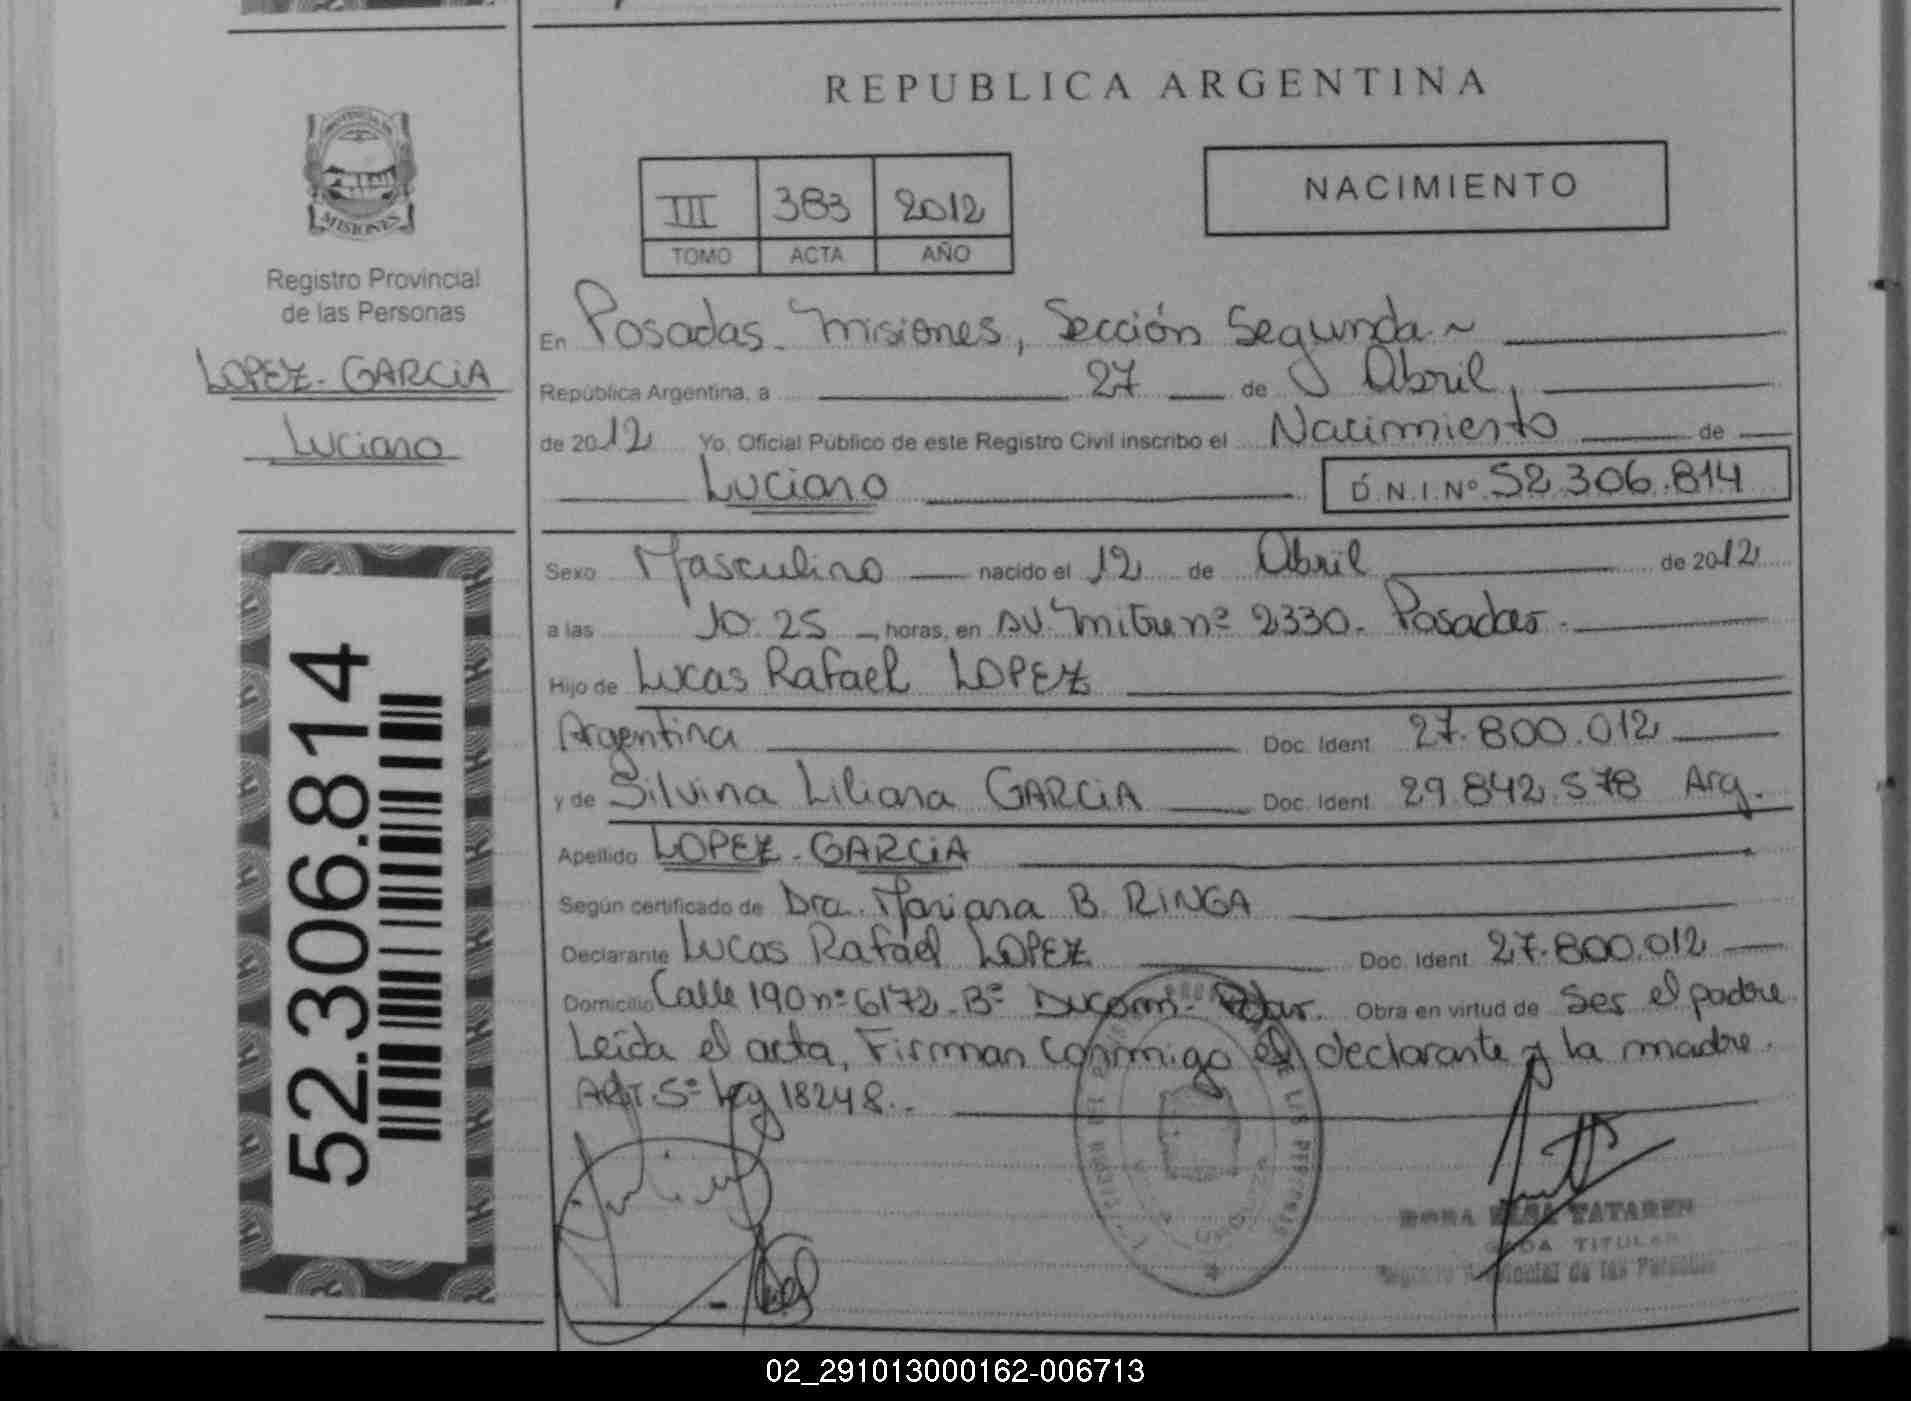 REPUBLICA ARGENTINA
PROVINCIA DE
MISIONES
Registro Provincial
de las Personas
LOPEZ-GARCIA
Luciano
52.306.814
III 383 2012
TOMO ACTA AÑO
NACIMIENTO
En Posadas. Misiones, Sección Segunda
República Argentina, a 27 de Abril,
de 2012 Yo, Oficial Público de este Registro Civil inscribo el Nacimiento de
Luciano D.N.I.Nº 52.306.814
Sexo Masculino nacido el 12 de Abril de 2012
a las 10.25 horas, en AV. Mitre nº 2330. Posadas.
Hijo de Lucas Rafael LOPEZ
Argentina Doc. Ident. 27.800.012
y de Silvina Liliana GARCIA Doc. Ident. 29.842.578 Arg.
Apellido LOPEZ-GARCIA
Según certificado de Dra. Mariana B. RINGA
Declarante Lucas Rafael LOPEZ Doc. Ident. 27.800.012
Domicilio Calle 190 nº 6172. Bº Obra en virtud de Ser el padre
Leída el acta, Firman conmigo el declarante y la madre.
ART. 5º Ley 18248.
TATAREN
TITULAR
de las Personas
02_291013000162-006713